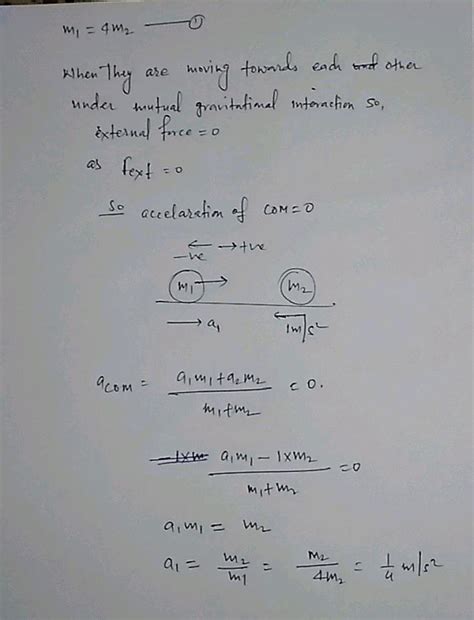 m₁ = 4m₂ —— ①
When They are moving towards each other
under mutual gravitational interaction so,
external force = 0
as fext = 0
so accelaration of COM = 0
-ve ← → +ve
m₁ → m₂
→ a₁ ← 1m/s²
aCOM = (a₁m₁ + a₂m₂) / (m₁ + m₂) = 0.
(a₁m₁ - 1×m₂) / (m₁ + m₂) = 0
a₁m₁ = m₂
a₁ = m₂/m₁ = m₂/4m₂ = 1/4 m/s²